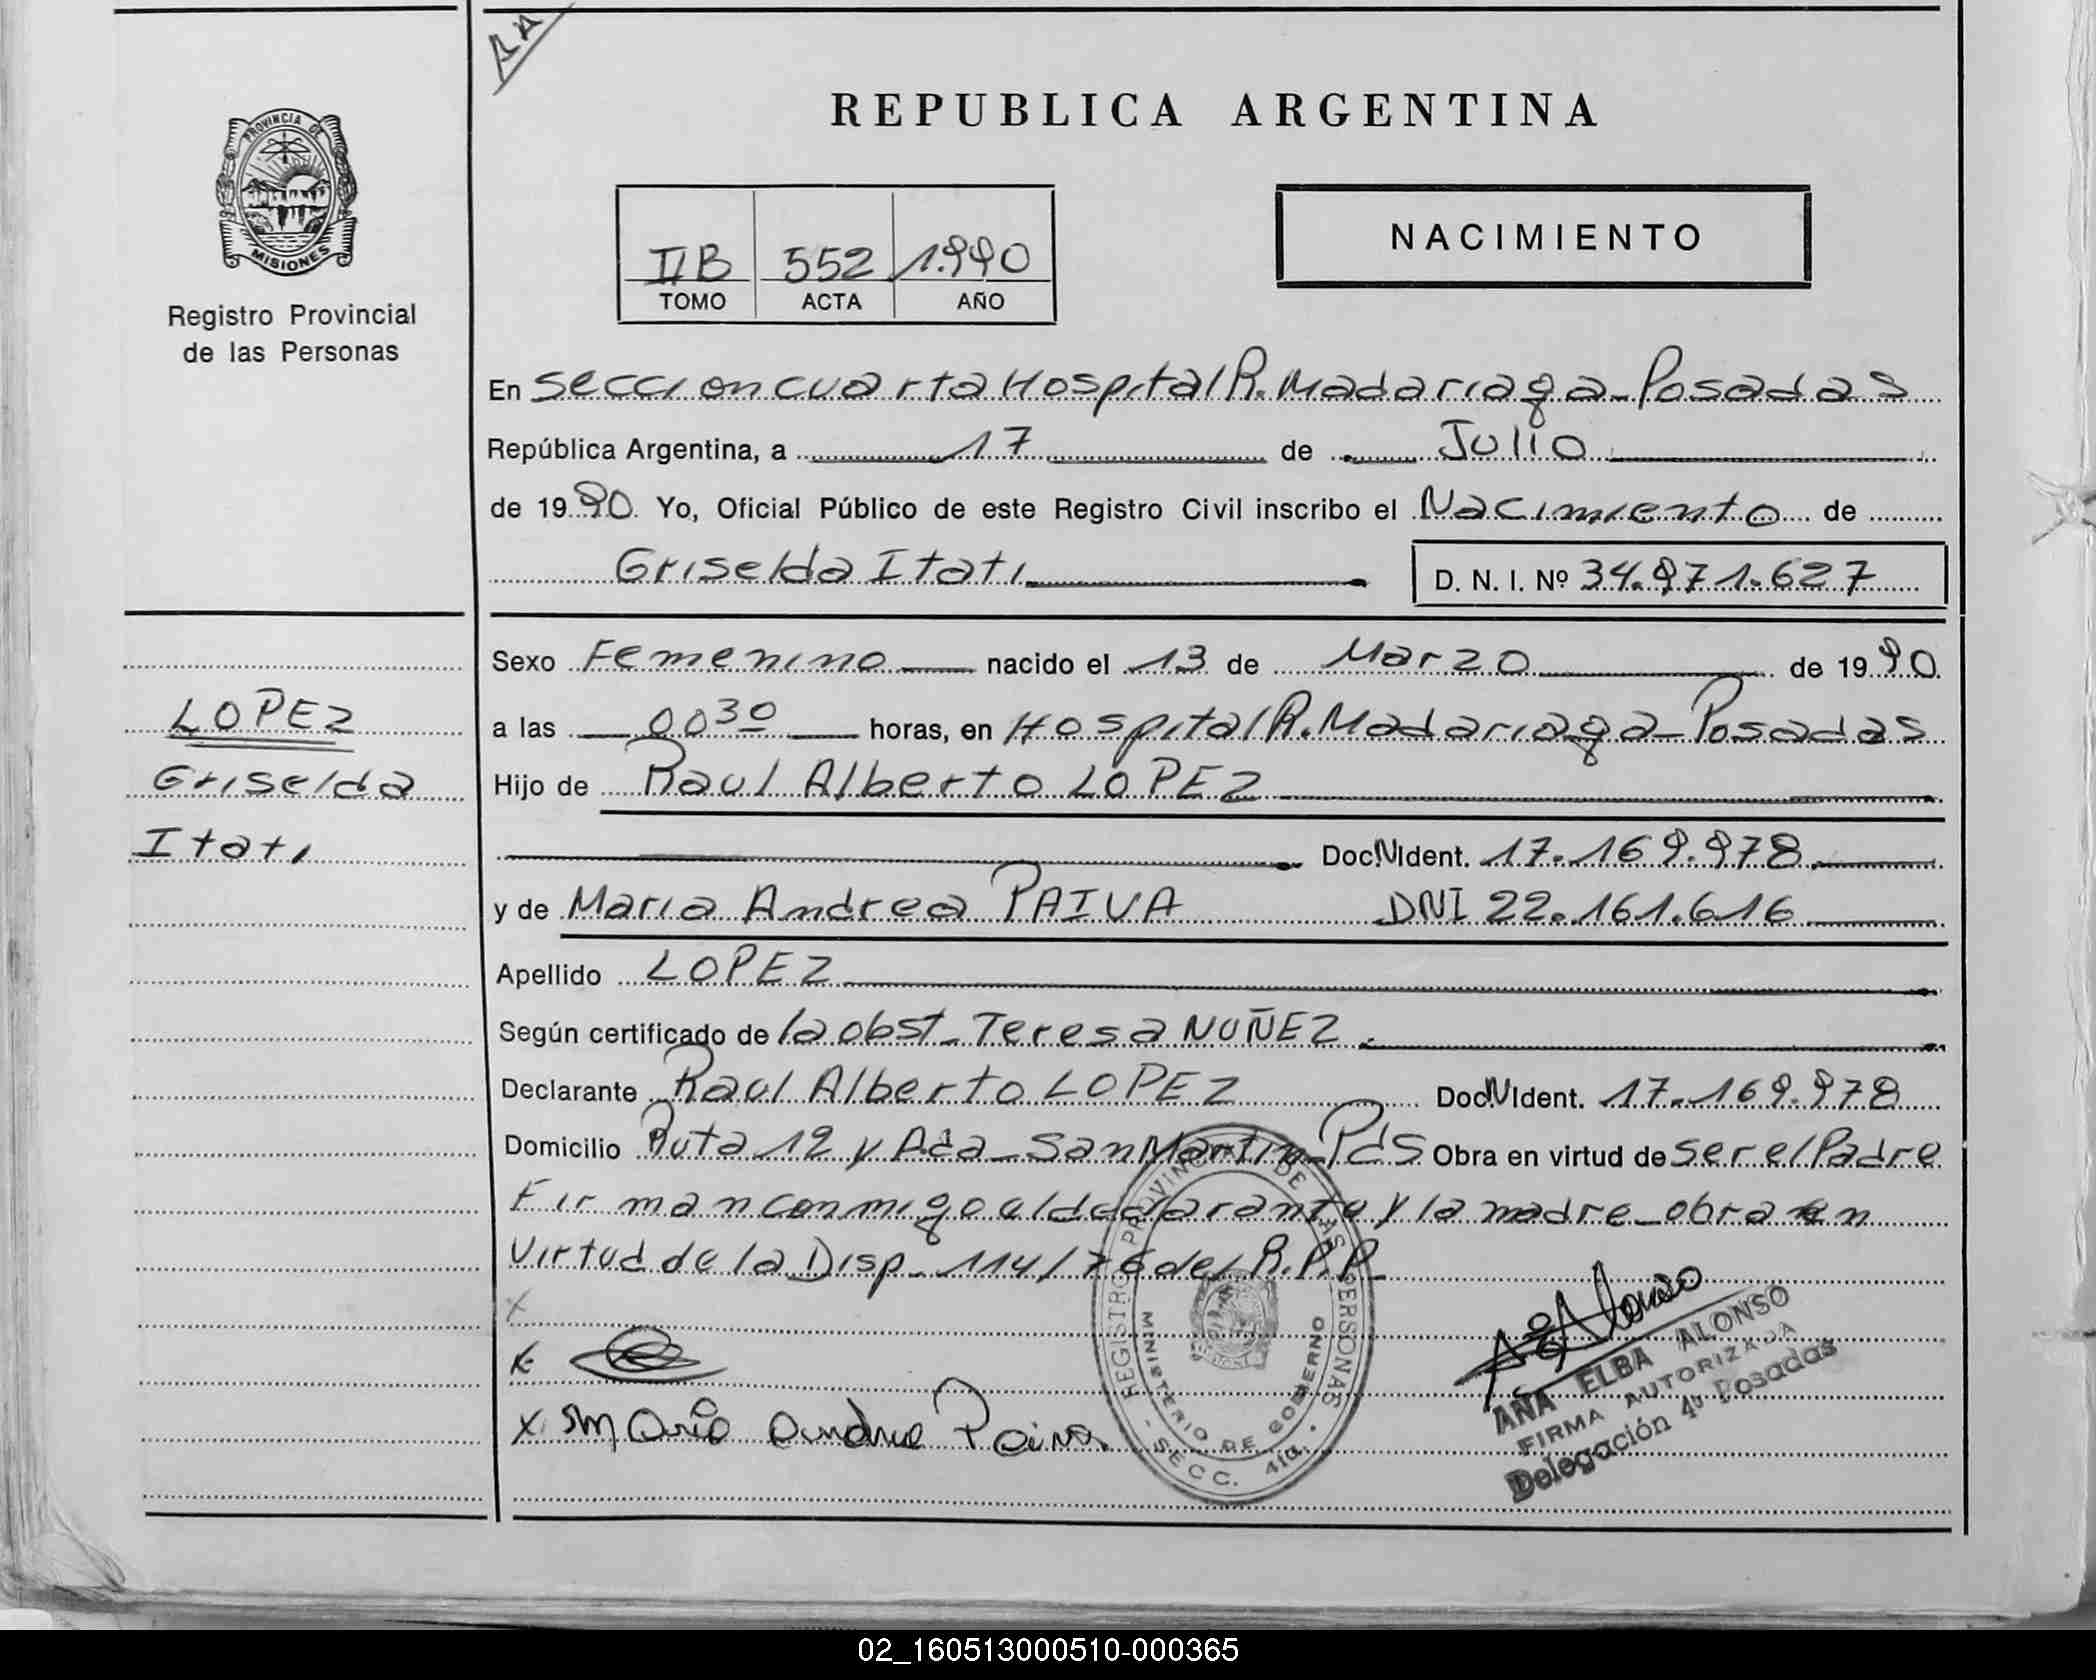 REPUBLICA ARGENTINA
PROVINCIA DE
MISIONES
Registro Provincial
de las Personas
II B 552 1.990
TOMO ACTA AÑO
NACIMIENTO
En Seccion cuarta Hospital R. Madariaga - Posadas
República Argentina, a 17 de Julio
de 1990. Yo, Oficial Público de este Registro Civil inscribo el Nacimiento de
Griselda Itati D. N. I. Nº 34.971.627
Sexo Femenino nacido el 13 de Marzo de 1990.
a las 00 30 horas, en Hospital R. Madariaga - Posadas
LOPEZ
Griselda
Itati
Hijo de Raul Alberto LOPEZ
Doc. N Ident. 17.169.978
y de Maria Andrea PAIVA DNI 22.161.616
Apellido LOPEZ
Según certificado de la obst - Teresa NUÑEZ.
Declarante Raul Alberto LOPEZ Doc. N Ident. 17.169.978
Domicilio Ruta 12 y Ada - San Martin - Pds Obra en virtud de ser el Padre
Firman conmigo el declarante y la madre - obra en
Virtud de la Disp - 114/76 del R.P.P.
X
X
X Maria Andrea Paiva
REGISTRO PROVINCIAL DE LAS PERSONAS
MINISTERIO DE GOBIERNO
- SECC. 4ta. -
ANA ELBA ALONSO
FIRMA AUTORIZADA
Delegación 4ª Posadas
02_160513000510-000365